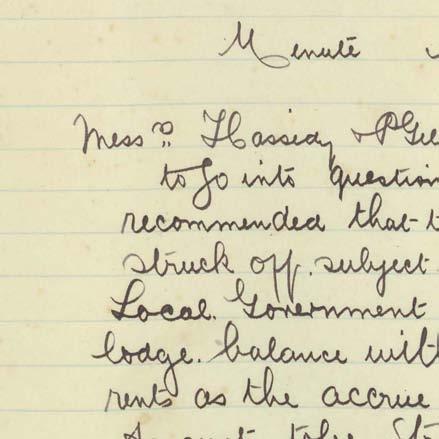 Minute
Messrs Hassidy & P Gee
to go into question
recommended that t
struck off. subject
Local. Government
lodge. balance with
rents as the accrue